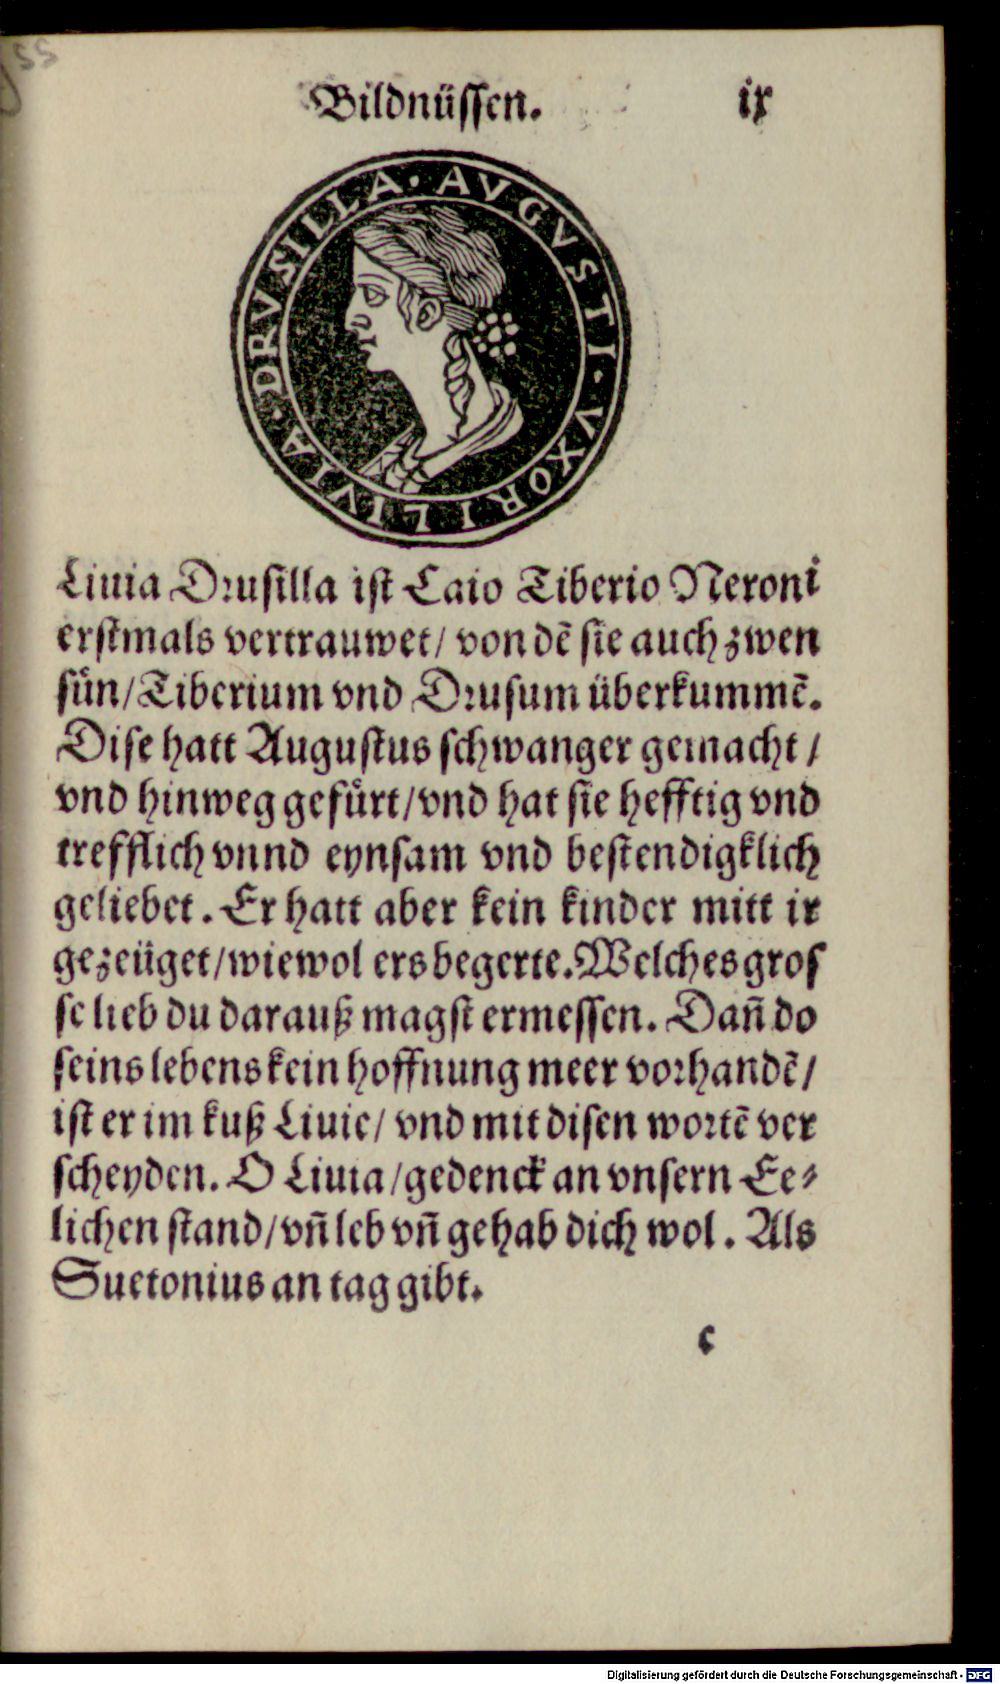 55
Bildnüssen. ix
LIVIA · DRVSILLA · AVGVSTI · VXORI
Liuia Drusilla ist Caio Tiberio Neroni
erstmals vertrauwet/ von dē sie auch zwen
sün/Tiberium vnd Drusum überkummē.
Dise hatt Augustus schwanger gemacht /
vnd hinweg gefürt/vnd hat sie hefftig vnd
trefflich vnnd eynsam vnd bestendigklich
geliebet. Er hatt aber kein kinder mitt ir
gezeüget/wiewol ers begerte.Welches gros
se lieb du darauß magst ermessen. Dañ do
seins lebens kein hoffnung meer vorhandē/
ist er im kuß Liuie/ vnd mit disen wortē ver
scheyden. O Liuia/gedenck an vnsern Ee-
lichen stand/vñ leb vñ gehab dich wol. Als
Suetonius an tag gibt.
c
Digitalisierung gefördert durch die Deutsche Forschungsgemeinschaft - DFG